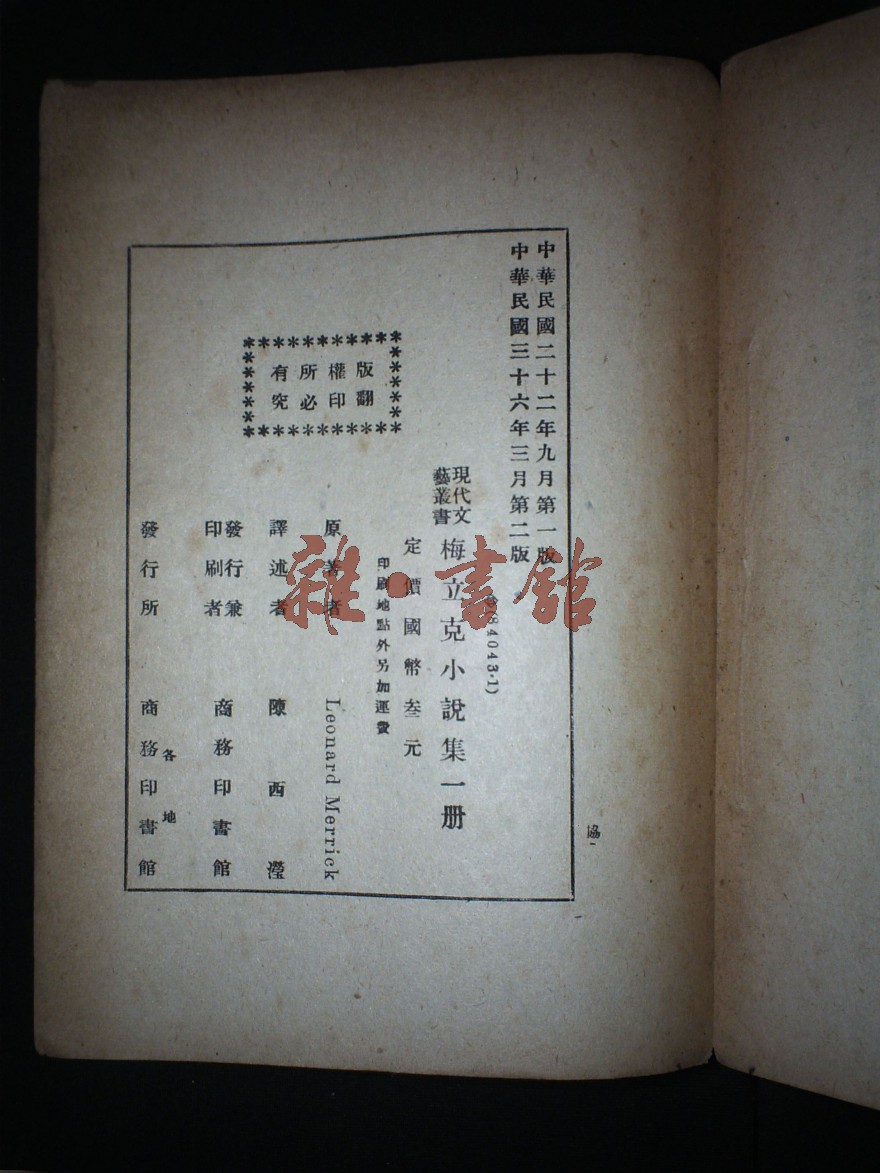 中華民國二十二年九月第一版
中華民國三十六年三月第二版
84043·1)
現代文藝叢書
梅立克小說集一册
定價國幣叁元
印刷地點外另加運費
版權所有
翻印必究
原著者 Leonard Merrick
譯述者 陳西瀅
發行兼印刷者 商務印書館
發行所 各地 商務印書館
協
雜·書館